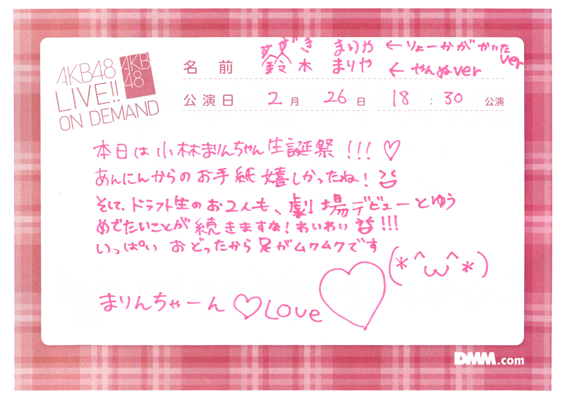 AKB48
LIVE!!
ON DEMAND
AKB
48
すずき まりや ←りょーかがかいたver
名 前 鈴木 まりや ←やんぬver
公演日 2月 26日 18:30 公演
本日は小林まりんちゃん生誕祭!!!♡
あんにんからのお手紙嬉しかったね!
そして、ドラフト生のお2人も、劇場デビューとゆう
めでたいことが続きますな!わいわい!!!
いっぱい おどったから足がムクムクです
(*^ω^*)
まりんちゃーん♡Love
DMM.com